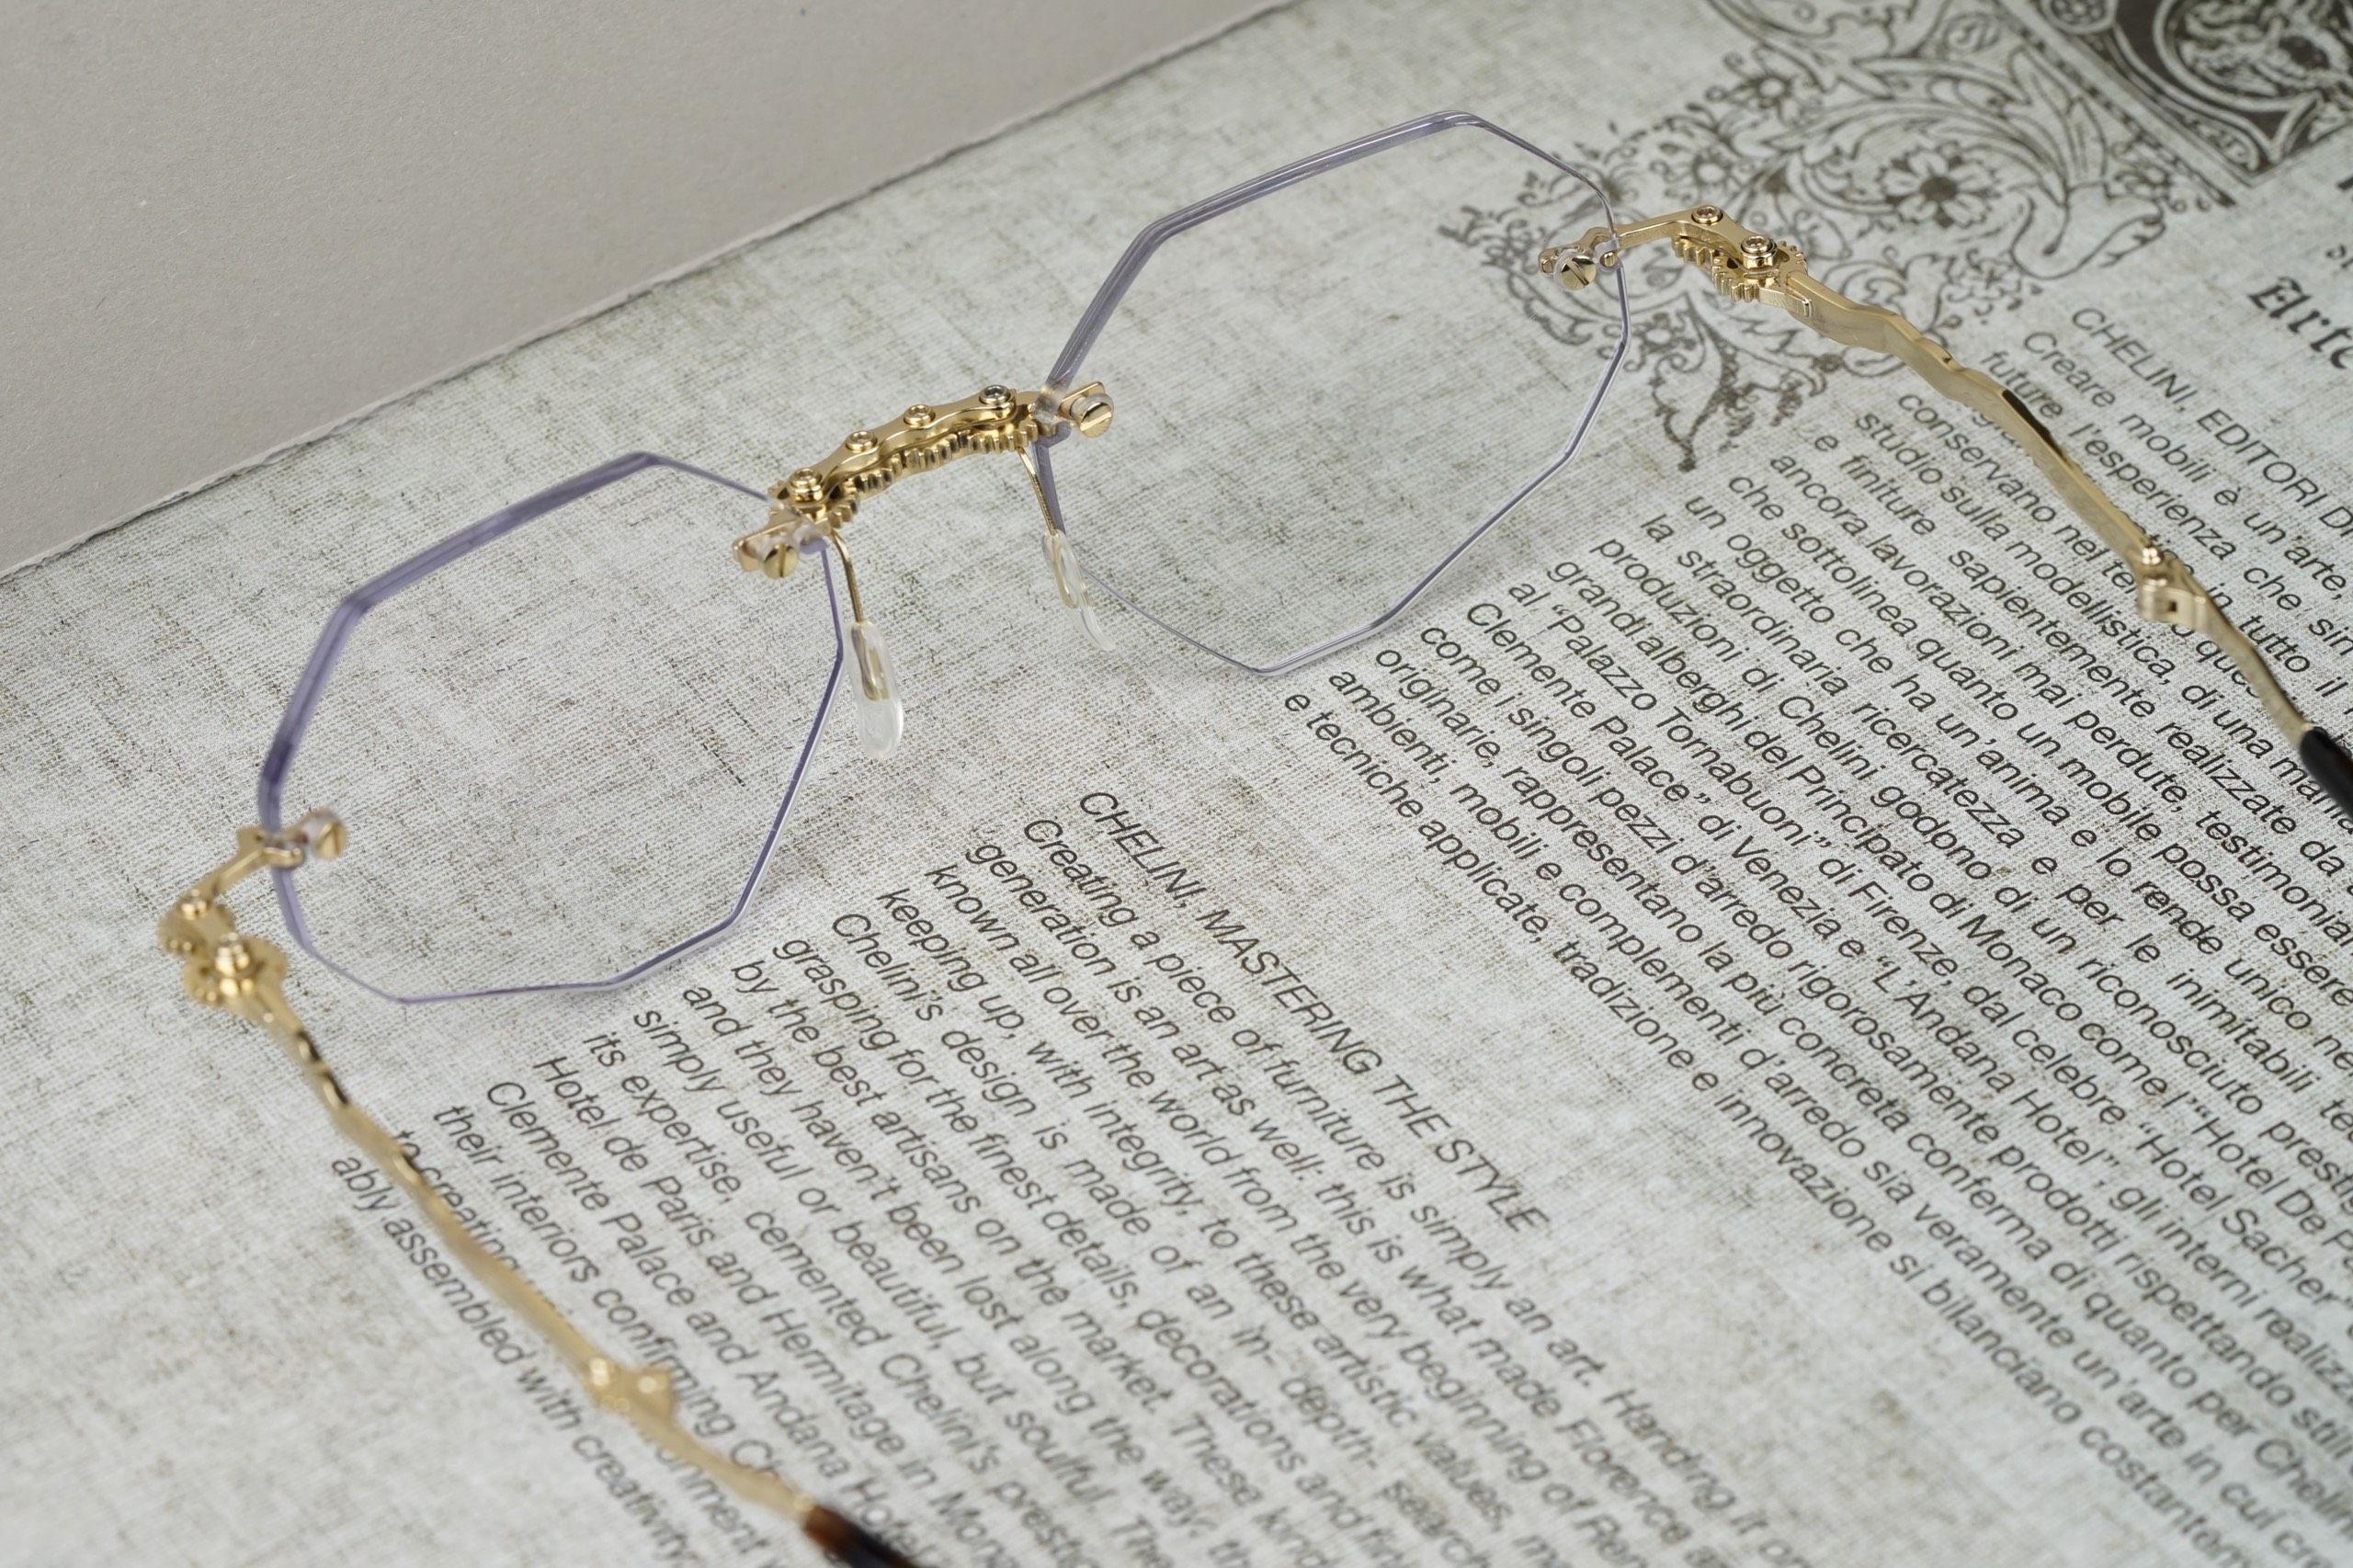 Arte
CHELINI, EDITORI DI
Creare mobili è un'arte,
future l'esperienza che sin
conservano nel in tutto il
studio sulla modellistica, di una
e finiture sapientemente realizzate da
ancora lavorazioni mai perdute,
che sottolinea quanto un mobile possa essere
un oggetto che ha un'anima e lo rende unico
la straordinaria ricercatezza e per le inimitabili
produzioni di Chelini godono di un riconosciuto
grandi alberghi del Principato di Monaco come l'“Hotel De
al “Palazzo Tornabuoni” di Firenze, dal celebre “Hotel Sacher”
Clemente Palace” di Venezia e “L'Andana Hotel”, gli interni
come i singoli pezzi d'arredo rigorosamente prodotti rispettando stili
originarie, rappresentano la più concreta conferma di quanto per
ambienti, mobili e complementi d'arredo sia veramente un'arte in cui
e tecniche applicate, tradizione e innovazione si bilanciano
CHELINI, MASTERING THE STYLE
Creating a piece of furniture is simply an art. Handing it
generation is an art as well: this is what made Florence
known all over the world from the very beginning of
keeping up, with integrity, to these artistic values,
Chelini's design is made of an in- depth- search
grasping for the finest details, decorations and
by the best artisans on the market. These
and they haven't been lost along the way:
simply useful or beautiful, but soulful.
its expertise, cemented Chelini's
Hotel de Paris and Hermitage in
Clemente Palace and Andana
their interiors confirming
to creating
ably assembled with creativity